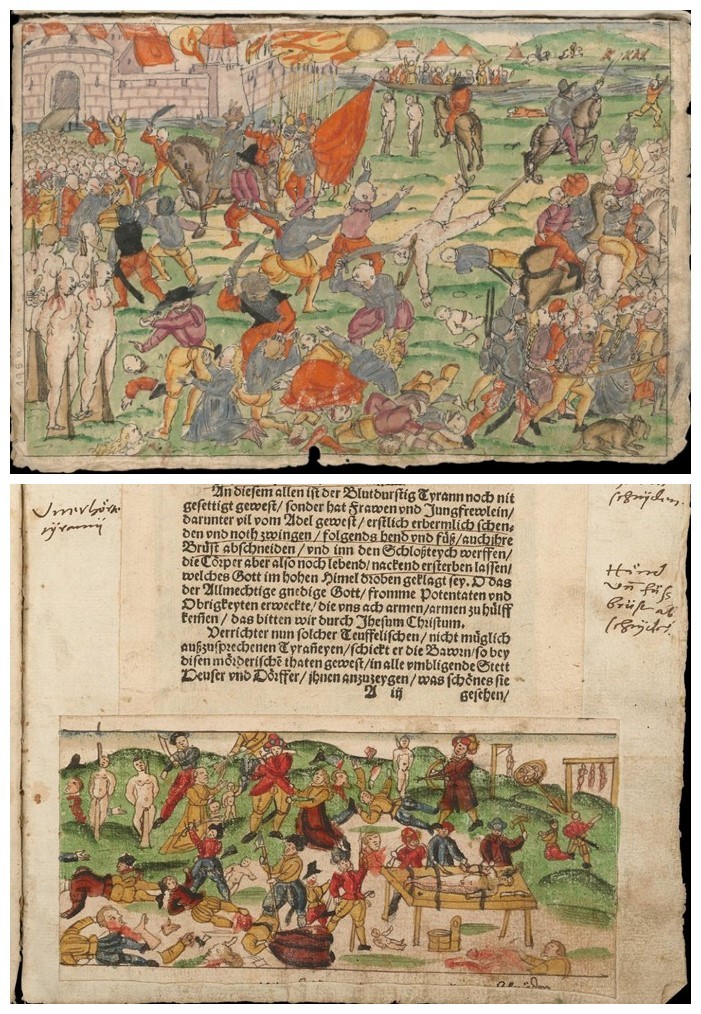 An diesem allen ist der Blutdurstig Tyrann noch nit
gesettigt gewest / sonder hat Frawen vnd Jungfrewlein /
darunter vil vom Adel gewest / erstlich erbermlich schen⸗
den vnd noth zwingen / folgends hend vnd füß / auch ihre
Brüst abschneiden / vnd inn den Schloßteych werffen /
die Cörper aber also noch lebend / nackend ersterben lassen /
welches Gott im hohen Himel droben geklagt sey. O das
der Allmechtige gnedige Gott / fromme Potentaten vnd
Obrigkeyten erweckte / die vns ach armen / armen zu hülff
kemen / das bitten wir durch Jhesum Christum.
Verrichter nun solcher Teuffelischen / nicht müglich
außzusprechenen Tyrañeyen / schickt er die Bawrn / so bey
disen mörderischẽ thaten gewest / in alle vmbligende Stett
Heuser vnd Dörffer / ihnen anzuzeygen / was schönes sie
A iij gesehen /
Vnerhörte
tÿranny
schnÿden.
Hännd
vnd füss
brüst ab